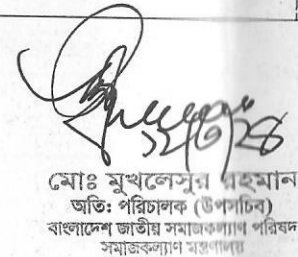 ১২/৩/২৪
মোঃ মুখলেসুর রহমান
অতি: পরিচালক (উপসচিব)
বাংলাদেশ জাতীয় সমাজকল্যাণ পরিষদ
সমাজকল্যাণ মন্ত্রণালয়